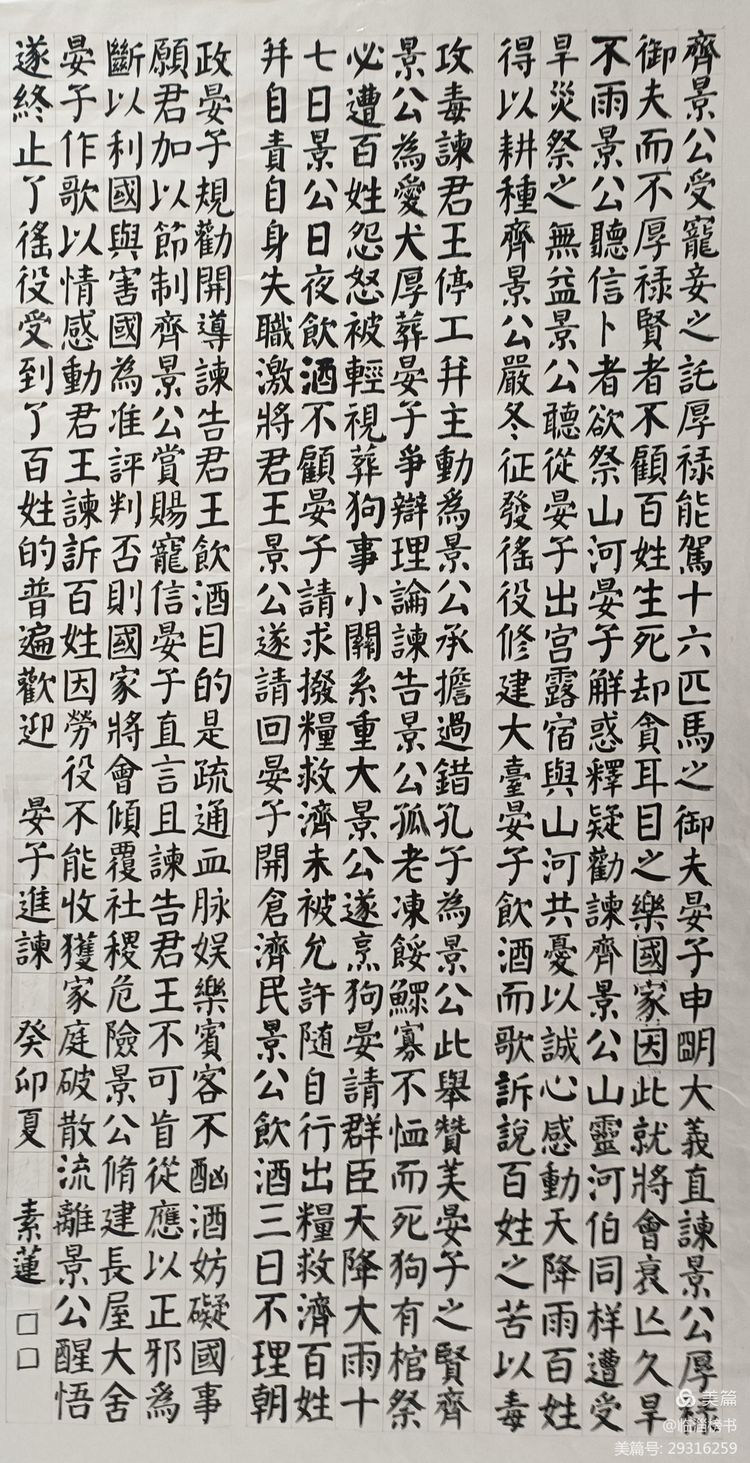 齊景公受寵妾之託厚祿能駕十六匹馬之御夫晏子申明大義直諫景公厚祿
御夫而不厚祿賢者不顧百姓生死却貪耳目之樂國家因此就將會衰亾久旱
不雨景公聽信卜者欲祭山河晏子解惑釋疑勸諫齊景公山靈河伯同樣遭受
旱災祭之無益景公聽從晏子出宫露宿與山河共憂以誠心感動天降雨百姓
得以耕種齊景公嚴冬征發徭役修建大臺晏子飲酒而歌訴說百姓之苦以毒
攻毒諫君王停工幷主動爲景公承擔過錯孔子為景公此舉贊美晏子之賢齊
景公為愛犬厚葬晏子爭辯理論諫告景公孤老凍餒鰥寡不恤而死狗有棺祭
必遭百姓怨怒被輕視葬狗事小關系重大景公遂烹狗晏請群臣天降大雨十
七日景公日夜飲酒不顧晏子請求撥糧救濟未被允許随自行出糧救濟百姓
幷自責自身失職激將君王景公遂請回晏子開倉濟民景公飲酒三日不理朝
政晏子規勸開導諫告君王飲酒目的是疏通血脉娱樂賓客不酗酒妨礙國事
願君加以節制齊景公賞賜寵信晏子直言且諫告君王不可盲從應以正邪爲
斷以利國與害國為准評判否則國家將會傾覆社稷危險景公脩建長屋大舍
晏子作歌以情感動君王諫訴百姓因勞役不能收獲家庭破散流離景公醒悟
遂終止了徭役受到了百姓的普遍歡迎 晏子進諫 癸卯夏 素蓮 □□
美篇
@临淄榜书
美篇号: 29316259